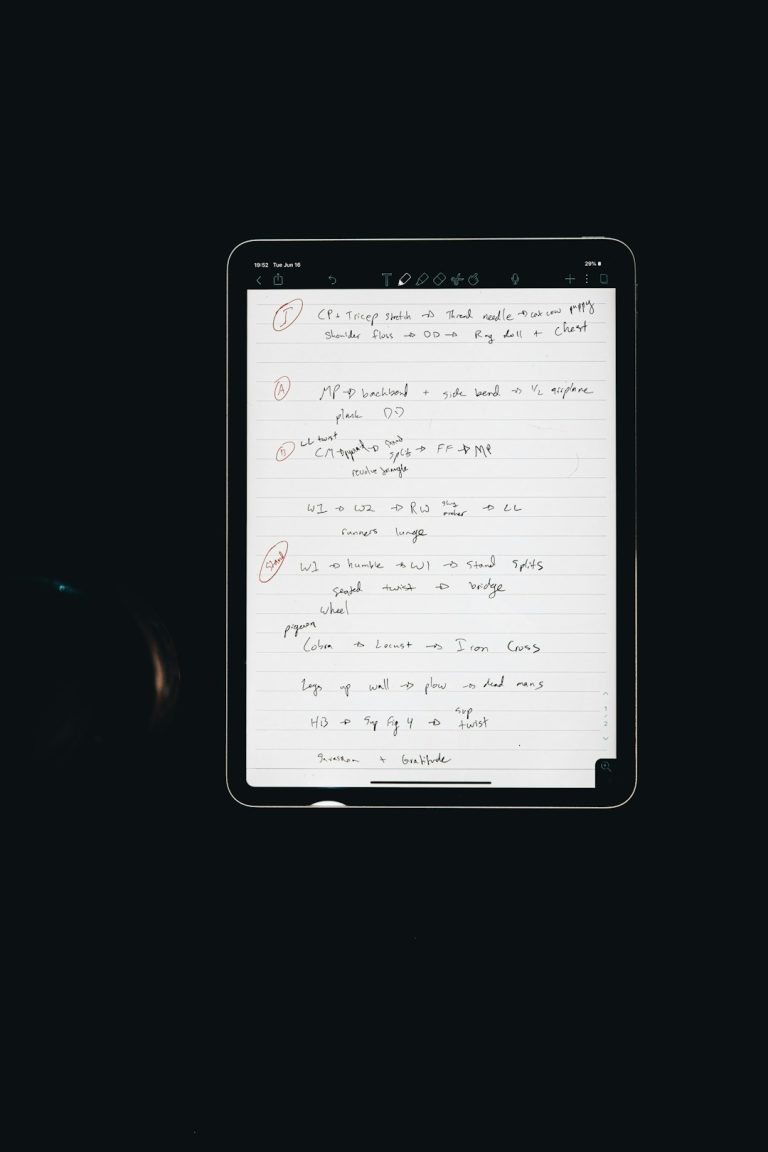 19:52 Tue Jun 16
29%
I CP + Tricep stretch → Thread needle → cat cow puppy
Shoulder floss → DD → Rag doll + chest
A MP → backbend + side bend → 1/2 airplane
plank DD
LL twist
B CM → → stand splits → FF → MP
revolve triangle
W1 → W2 → RW → LL
runners lunge
Stand W1 → humble → W1 → Stand splits
seated twist → bridge
wheel
pigeon
Cobra → Locust → Iron Cross
Legs up wall → plow → dead mans
HB → Sup Fig 4 → sup twist
Savasana + Gratitude
1
2